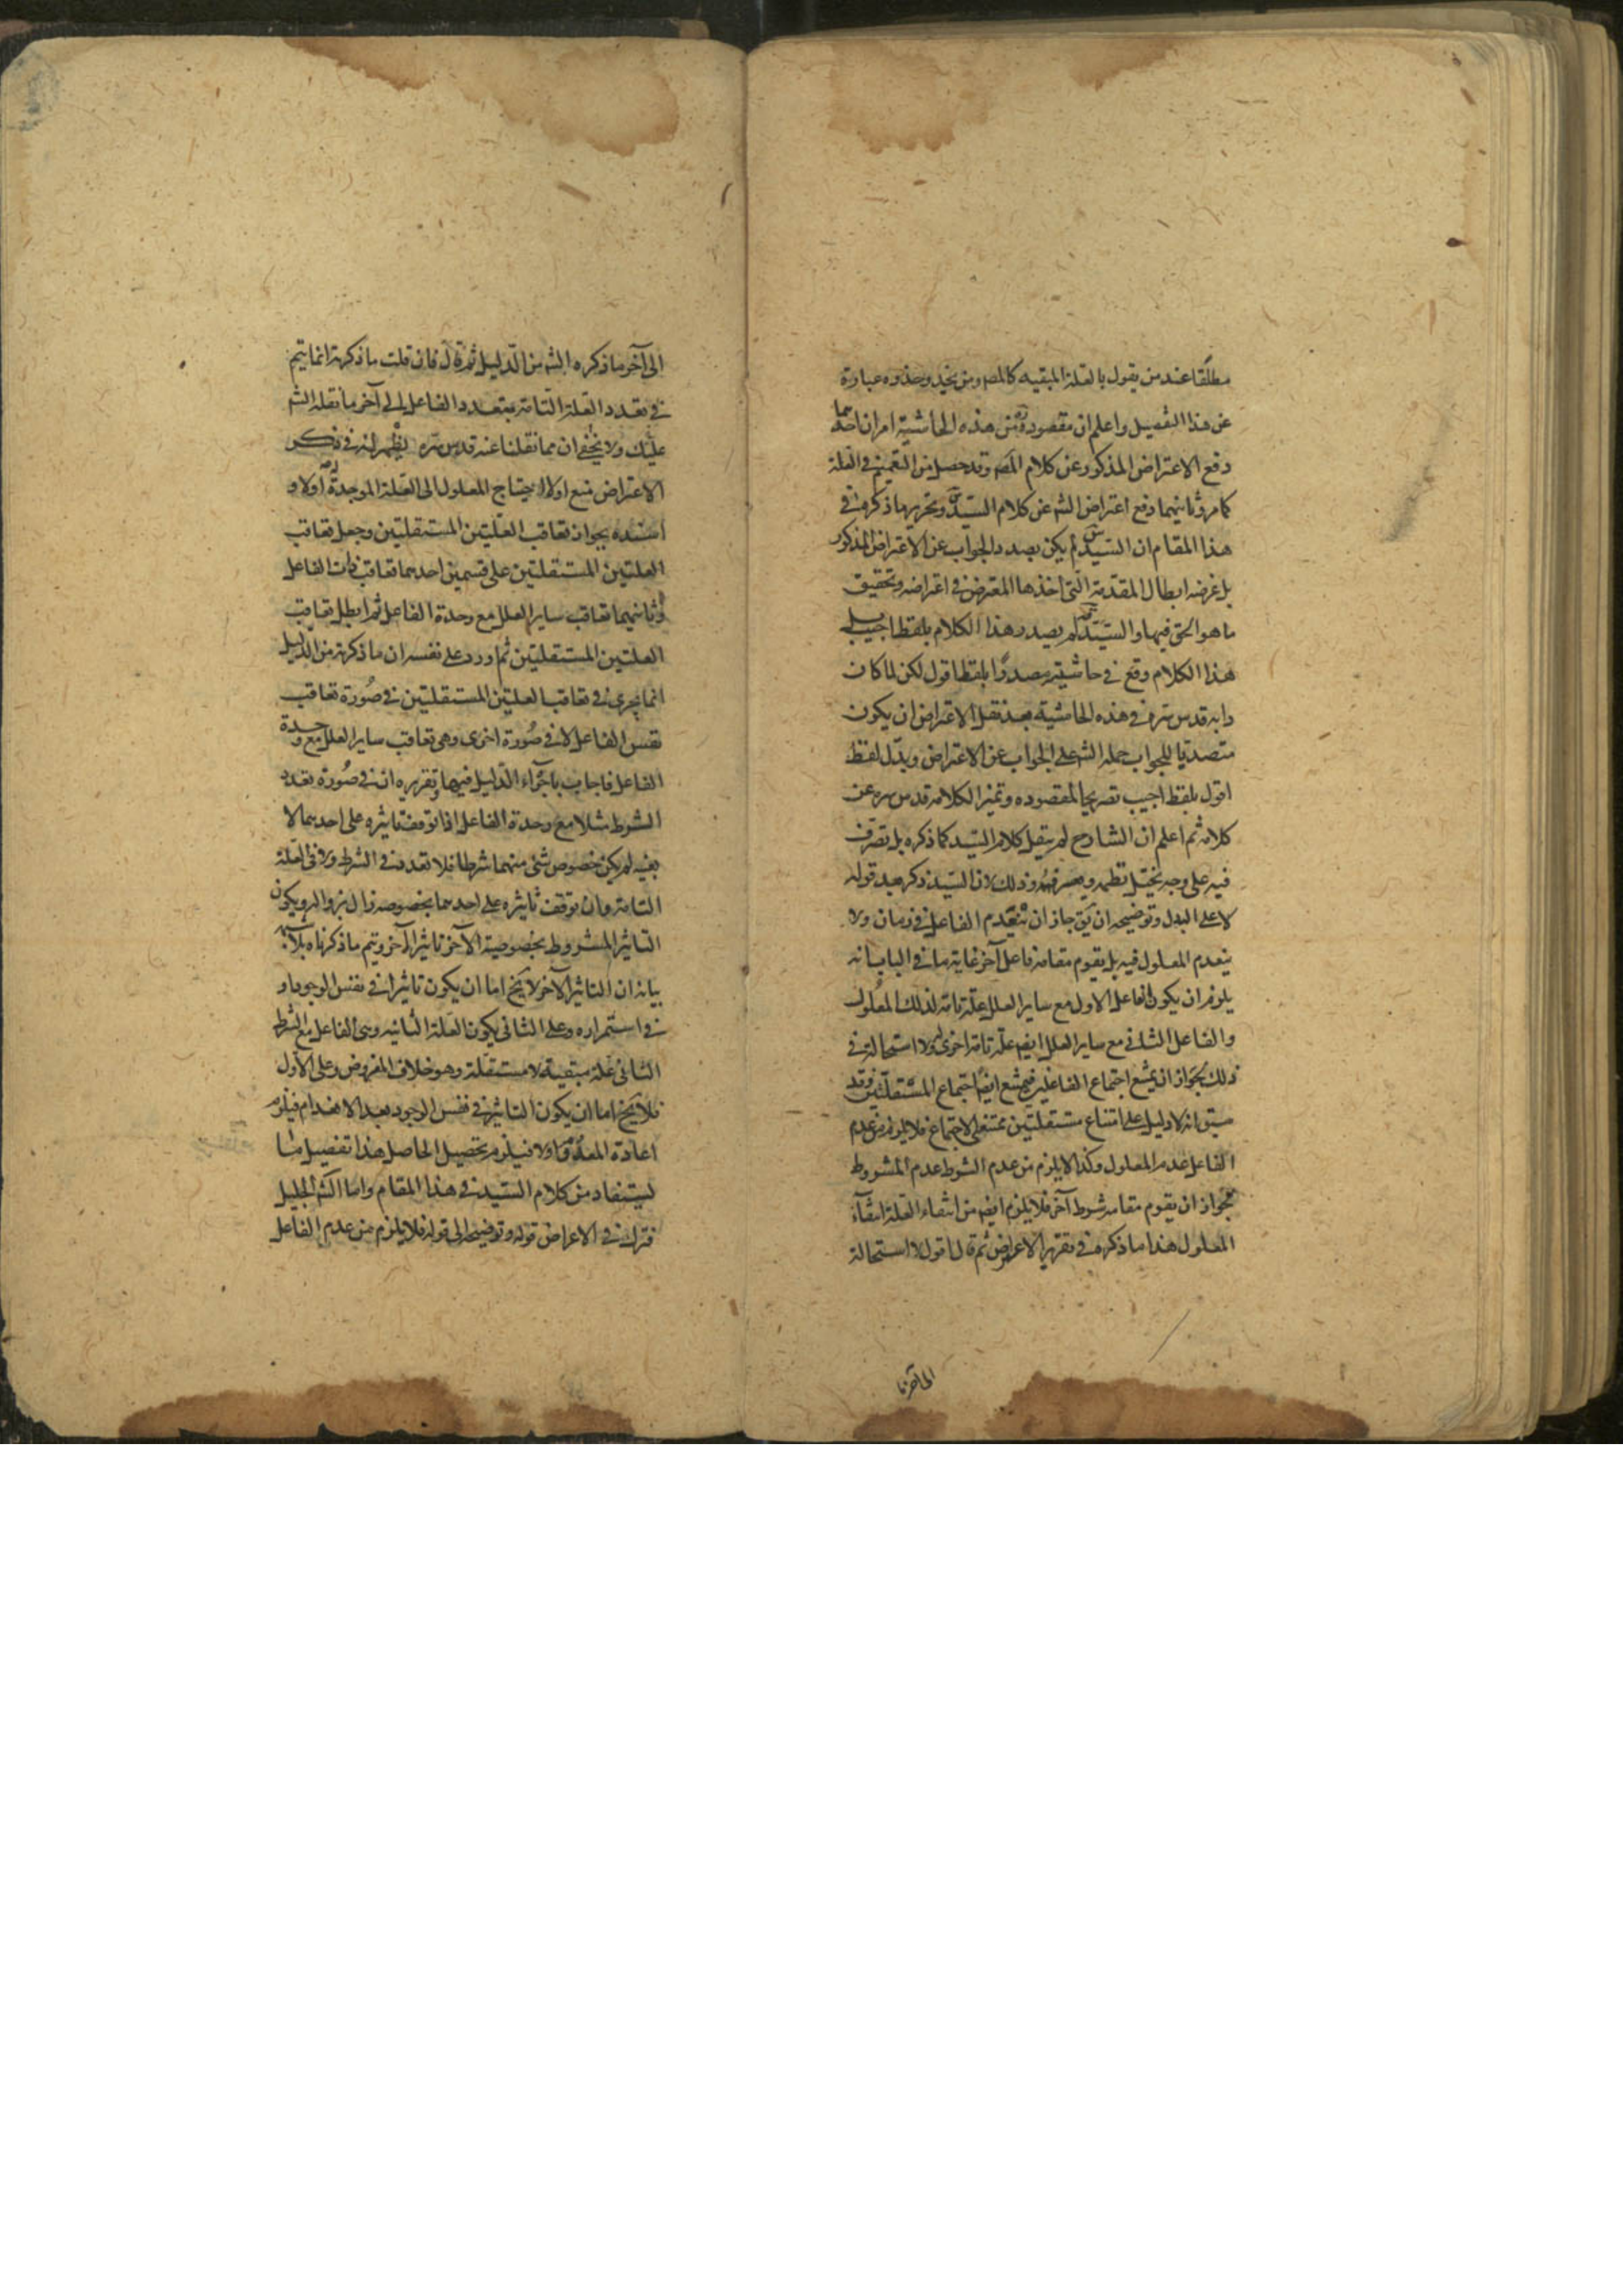 مطلقا عند من يقول بالعلة المبقيه كالمصه ومن يحذو حذوه عبارة
عن هذا التفصيل واعلم ان مقصوده من هذه الحاشية امران احدهما
دفع الاعتراض المذكور عن كلام المصه وقد حصل من التعميم في العلة
كما مر وثانيهما دفع اعتراض الشه عن كلام السيد وتحرير ما ذكره في
هذا المقام ان السيد لم يكن بصدد الجواب عن الاعتراض المذكور
بل غرضه ابطال المقدمة التى اخذها المعترض في اعتراضه وتحقيق
ما هو الحق فيها والسيد لم يصدر هذا الكلام بلفظ اجيب بل
هذا الكلام وقع في حاشيته مصدرا بلفظ اقول لكن لما كان
دابه قدس سره في هذه الحاشية بعد نقل الاعتراض ان يكون
متصديا للجواب حمله الشه على الجواب عن الاعتراض وبدل لفظ
اقول بلفظ اجيب تصريحا لمقصوده وتميزا لكلامه قدس سره عن
كلامه ثم اعلم ان الشارح لم ينقل كلام السيد كما ذكره بل تصرف
فيه على وجه يختل نظمه وذلك لان السيد ذكر بعد قوله
لا على البدل وتوضيحه ان يق جاز ان ينعدم الفاعل في زمان ولا
ينعدم المعلول فيه بل يقوم مقامه فاعل آخر غاية ما في الباب انه
يلزم ان يكون الفاعل الاول مع ساير العلل علة تامة لذلك المعلول
والفاعل الثاني مع ساير العلل ايضه علة تامة اخرى له ولا استحالة في
ذلك لجواز ان يمتنع اجتماع الفاعلين فيمتنع ايضا اجتماع المستقلتين وقد
سبق انه لا دليل على امتناع مستقلتين ممتنعتي الاجتماع فلا يلزم من عدم
الفاعل عدم المعلول وكذا لا يلزم من عدم الشرط عدم المشروط
لجواز ان يقوم مقامه شرط آخر فلا يلزم ايضه من انتفاء العلة انتفاء
المعلول هذا ما ذكره في تقرير الاعتراض ثم قال اقول لا استحالة
الى آخر ما ذكره الشه من الدليل ثم قال فان قلت ما ذكرته انما يتم
في تعدد العلة التامة بتعدد الفاعل الى آخر ما نقله الشه
عليك ولا يخفى ان مما نقلنا عنه قدس سره يظهر انه في ذكر
الاعتراض منع اولا احتياج المعلول الى العلة الموجدة اولا و
اسنده بجواز تعاقب العلتين المستقلتين وجعل تعاقب
العلتين المستقلتين على قسمين احدهما تعاقب ذات الفاعل
وثانيهما تعاقب ساير العلل مع وحدة الفاعل ثم ابطل تعاقب
العلتين المستقلتين ثم اورد على نفسه ان ما ذكرته من الدليل
انما يجرى في تعاقب العلتين المستقلتين في صورة تعاقب
نفس الفاعل لا في صورة اخرى وهى تعاقب ساير العلل مع وحدة
الفاعل فاجاب باجراء الدليل فيها وتقريره انه في صورة تعدد
الشرط مثلا مع وحدة الفاعل اذا توقف تاثيره على احدهما لا
بعينه لم يكن خصوص شئ منهما شرطا فلا تعدد في الشرط ولا في العلة
التامة وان توقف تاثيره على احدهما بخصوصه زال بزواله ويكون
التاثير المشروط بخصوصية الآخر تاثيرا آخر ويتم ما ذكرناه
بيانه ان التاثير الآخر لا يخ اما ان يكون تاثيرا في نفس الوجود او
في استمراره وعلى الثاني يكون العلة الثانيه وهى الفاعل مع الشرط
الثاني علة مبقية لا مستقلة وهو خلاف المفروض وعلى الاول
فلا يخ اما ان يكون التاثير في نفس الوجود بعد الانعدام فيلزم
اعادة المعدوم او لا فيلزم تحصيل الحاصل هذا تفصيل ما
يستفاد من كلام السيد في هذا المقام واما الشه الجليل
فترك في الاعراض قوله وتوضيحه الى قوله فلا يلزم من عدم الفاعل